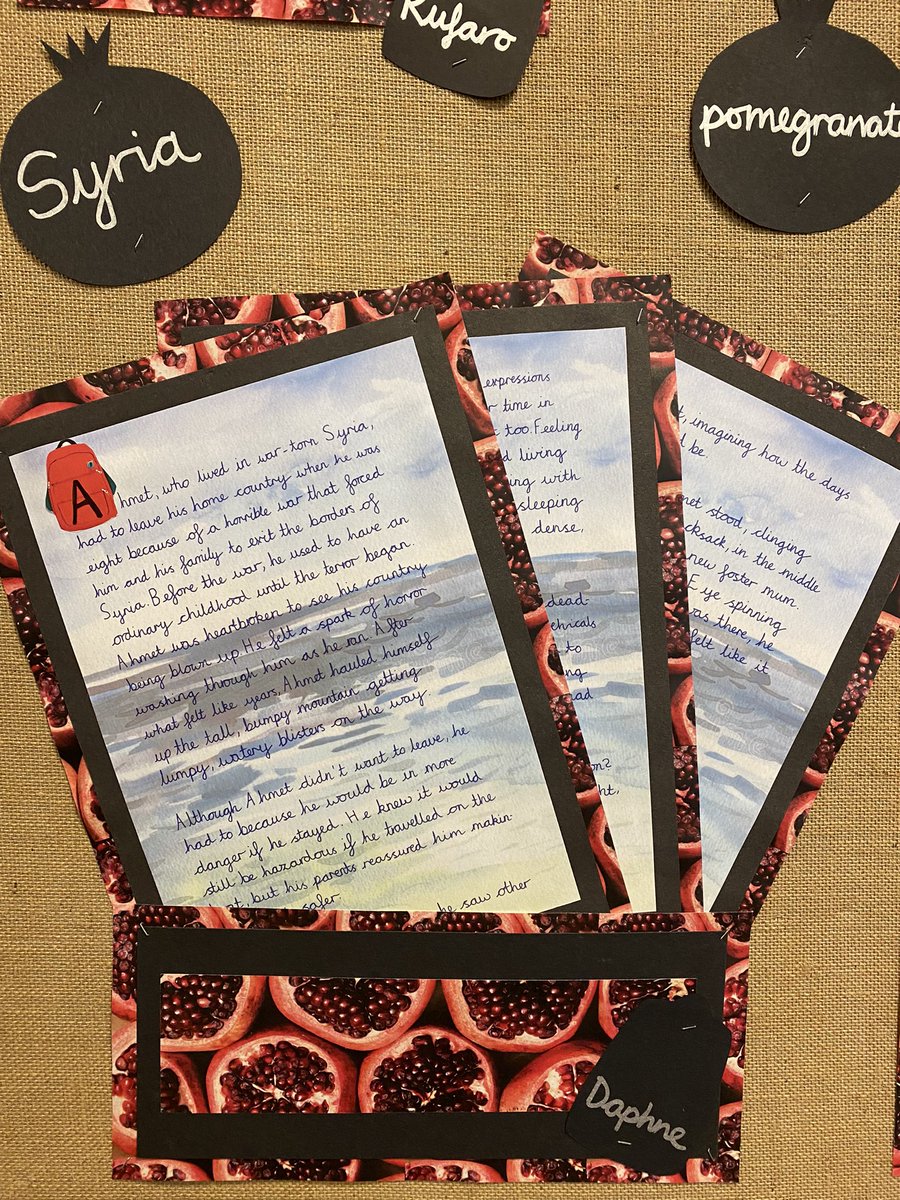 Rufaro
Syria
pomegranat
Ahmet, who lived in war-torn Syria,
had to leave his home country when he was
eight because of a horrible war that forced
him and his family to exit the borders of
Syria. Before the war, he used to have an
ordinary childhood until the terror began.
Ahmet was heartbroken to see his country
being blown up. He felt a spark of horror
washing through him as he ran. After
what felt like years, Ahmet hauled himself
up the tall, bumpy mountain getting
lumpy, watery blisters on the way.
Although Ahmet didn't want to leave, he
had to because he would be in more
danger if he stayed. He knew it would
still be hazardous if he travelled on the
but his parents reassured him makin
safer.
he saw other
expressions
time in
too. Feeling
living
with
sleeping
dense,
dead
to
imagining how the days
be.
stood, clinging
in the middle
new foster mum
Eye spinning
there, he
felt like it
Daphne